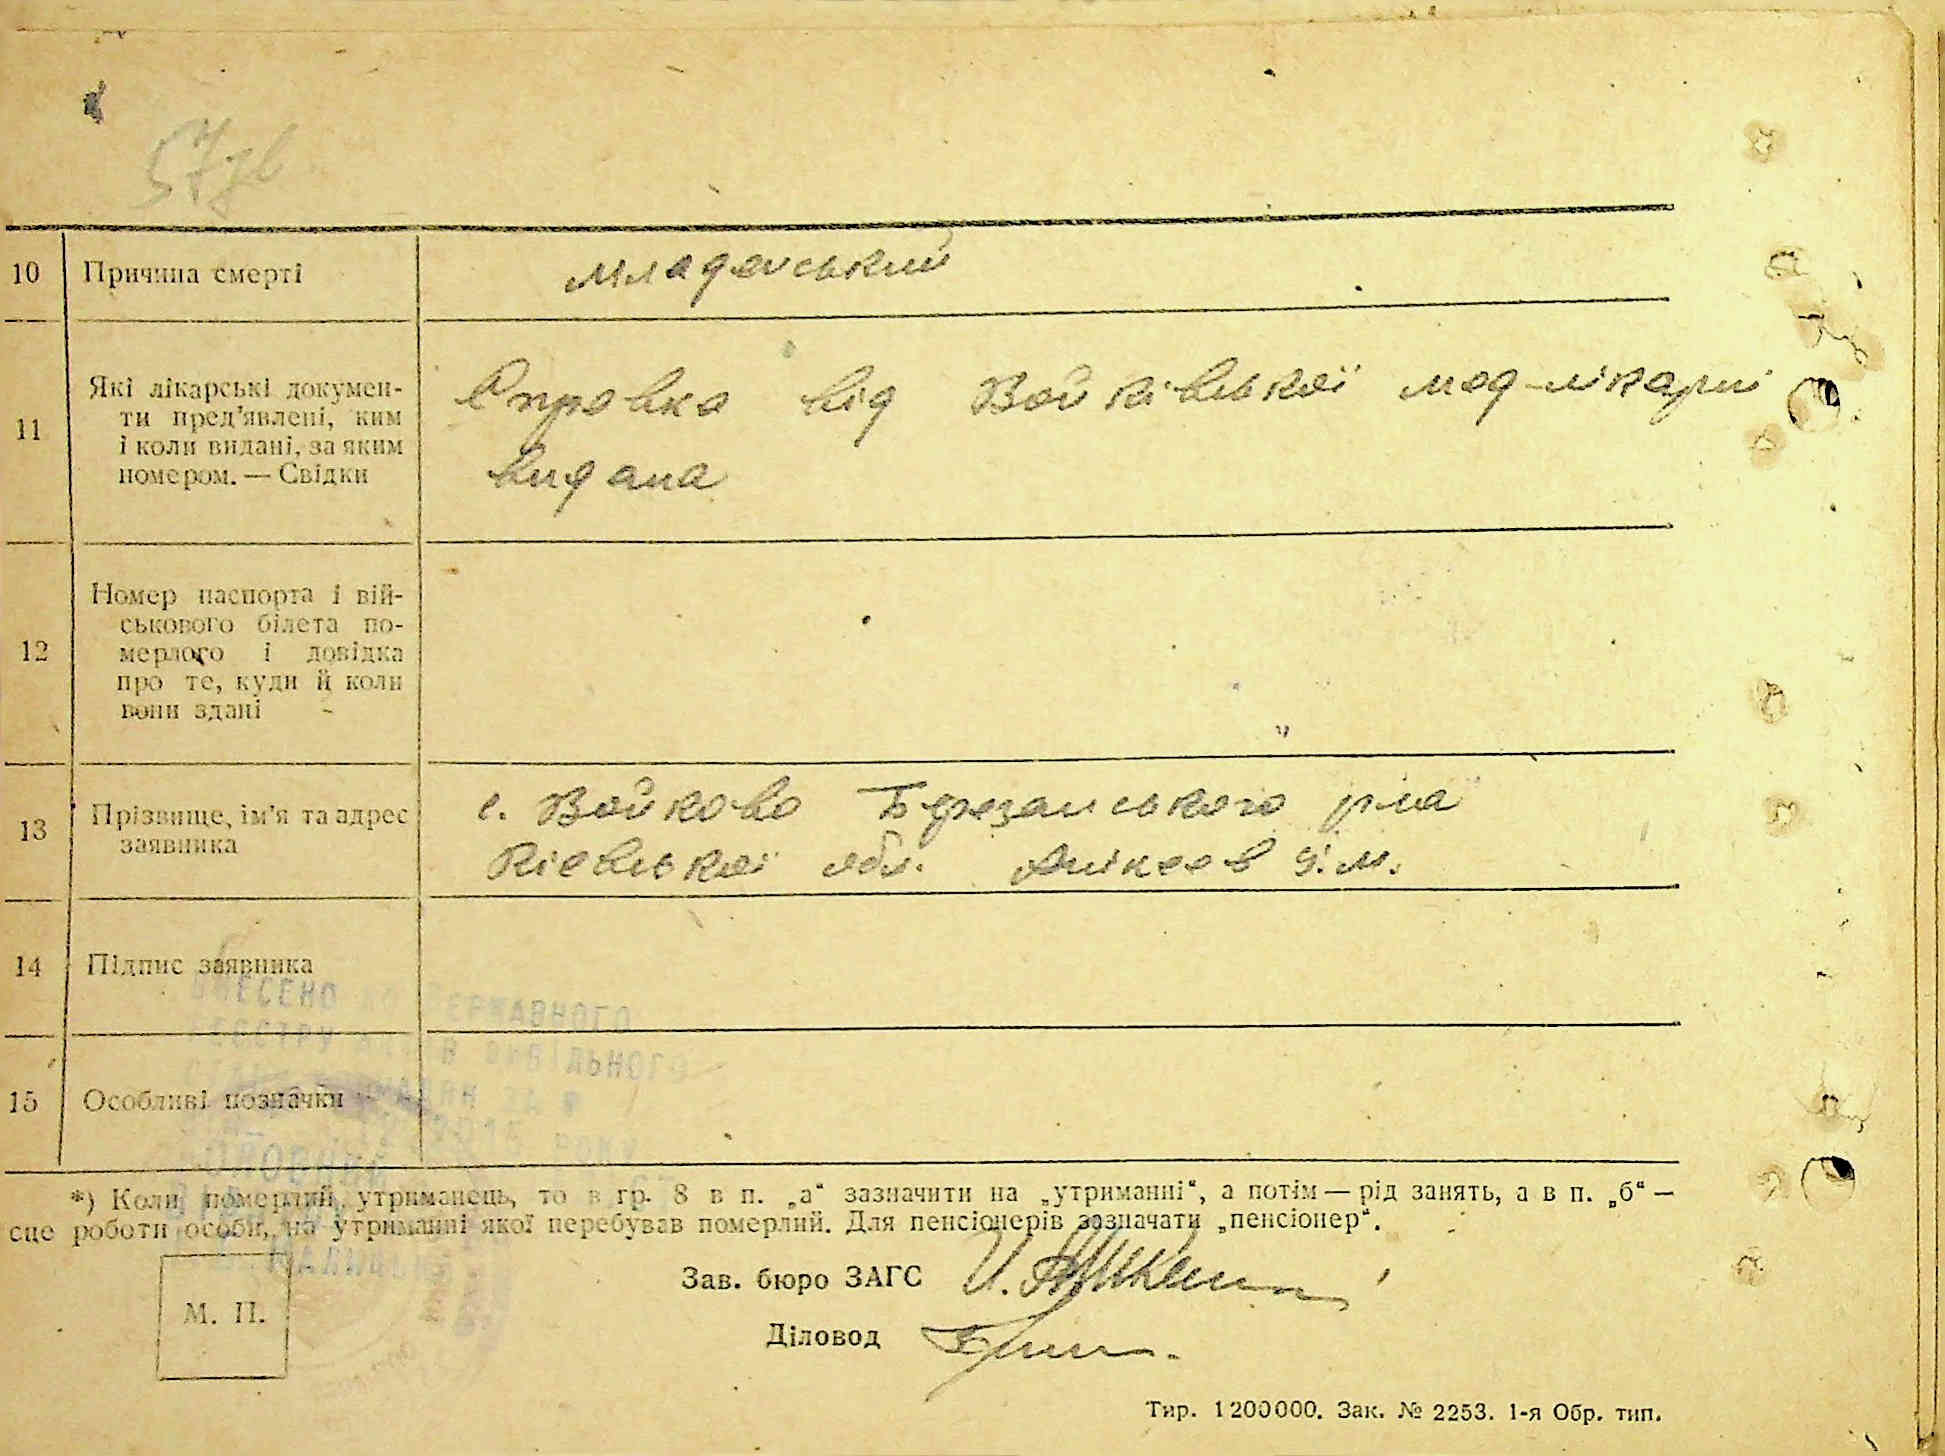 10 Причина смерті младенський
11 Які лікарські докумен-
ти пред'явлені, ким
і коли видані, за яким
номером. — Свідки
Справка від Войківської мед-лікарні
видана
12 Номер паспорта і вій-
ськового білета по-
мерлого і довідка
про те, куди й коли
вони здані
13 Прізвище, ім'я та адрес
заявника
с. Войково Березанського р-на
Кієвської обл. Анікеев
14 Підпис заявника
ВНЕСЕНО ДО ДЕРЖАВНОГО
РЕЄСТРУ АКТІВ ЦИВІЛЬНОГО
15 Особливі позначки
*) Коли померлий утриманець, то в гр. 8 в п. „а“ зазначити на „утриманні“, а потім — рід занять, а в п. „б“ —
сце роботи особи, на утриманні якої перебував померлий. Для пенсіонерів зазначати „пенсіонер“.
Зав. бюро ЗАГС
М. П.
Діловод
Тир. 1200000. Зак. № 2253. 1-я Обр. тип.